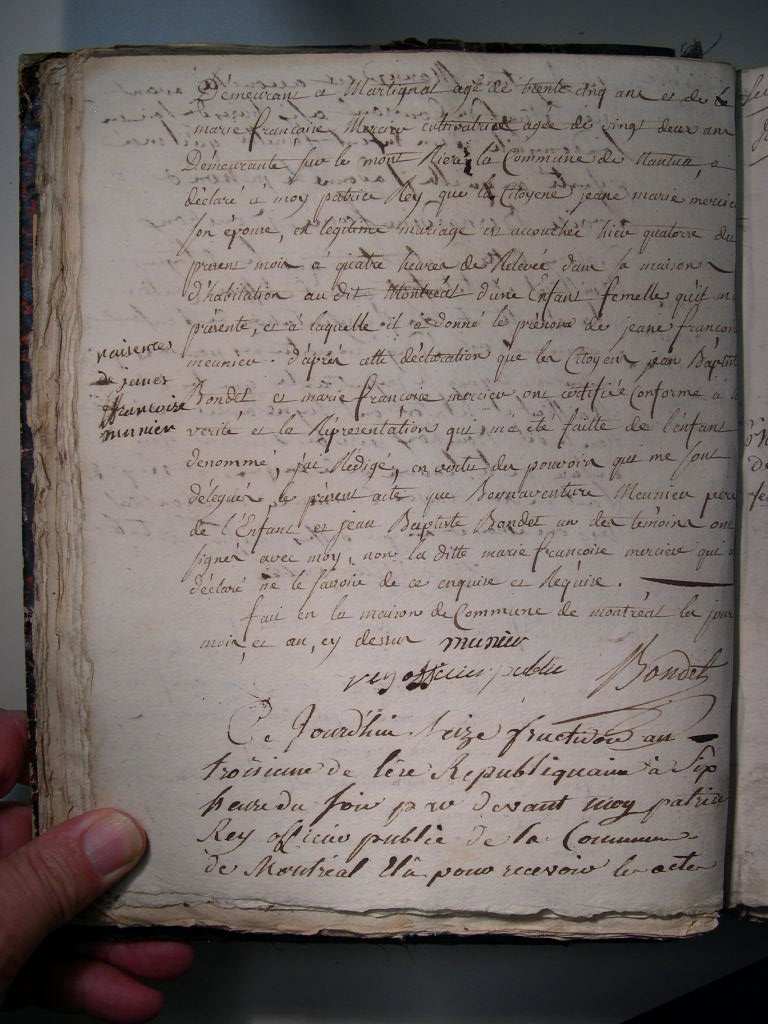 Demeurant a Martignat agé de trente cinq ans et de
marie francoise Mercier cultivatrice agée de vingt deux ans
Demeurante sur le mont la Commune de Nantua, a
déclaré a moy patrice Rey, que la Citoyene jeane marie mercier
son épouse, en légitime mariage est accouchée hier quatorze du
present mois a quatre heures de Relevée dans sa maison
d'habitation au dit Montréal d'une Enfant femelle qu'il m
présente, et a laquelle il a donné le prénom de jeane francoise
meunier. d'aprés cette déclaration que les Citoyens jean Baptiste
Bondet et marie francoise mercier ont certifiée Conforme a la
verité et la Réprésentation qui m'a été faitte de l'enfant
denommé, j'ai Rédigé, en vertu des pouvoirs que me sont
délégués, le présent acte que Bonnaventure Meunier pere
de l'Enfant et jean Baptiste Bondet un des temoins ont
signer avec moy, non la ditte marie francoise merciere qui a
déclaré ne le savoir de ce enquise et Réquise.
fait en la maison de Commune de montréal les jour
mois et an, cy dessus munier
rey officier public Bondet
naisences
de jeanes
francoise
munier
Ce Jourd'hui Seize fructidor an
troisieme de l'ere Republiquaine a Six
heure du soir par devant moy patrice
Rey officier public de la Commune
de Montréal Elû pour recevoir les actes